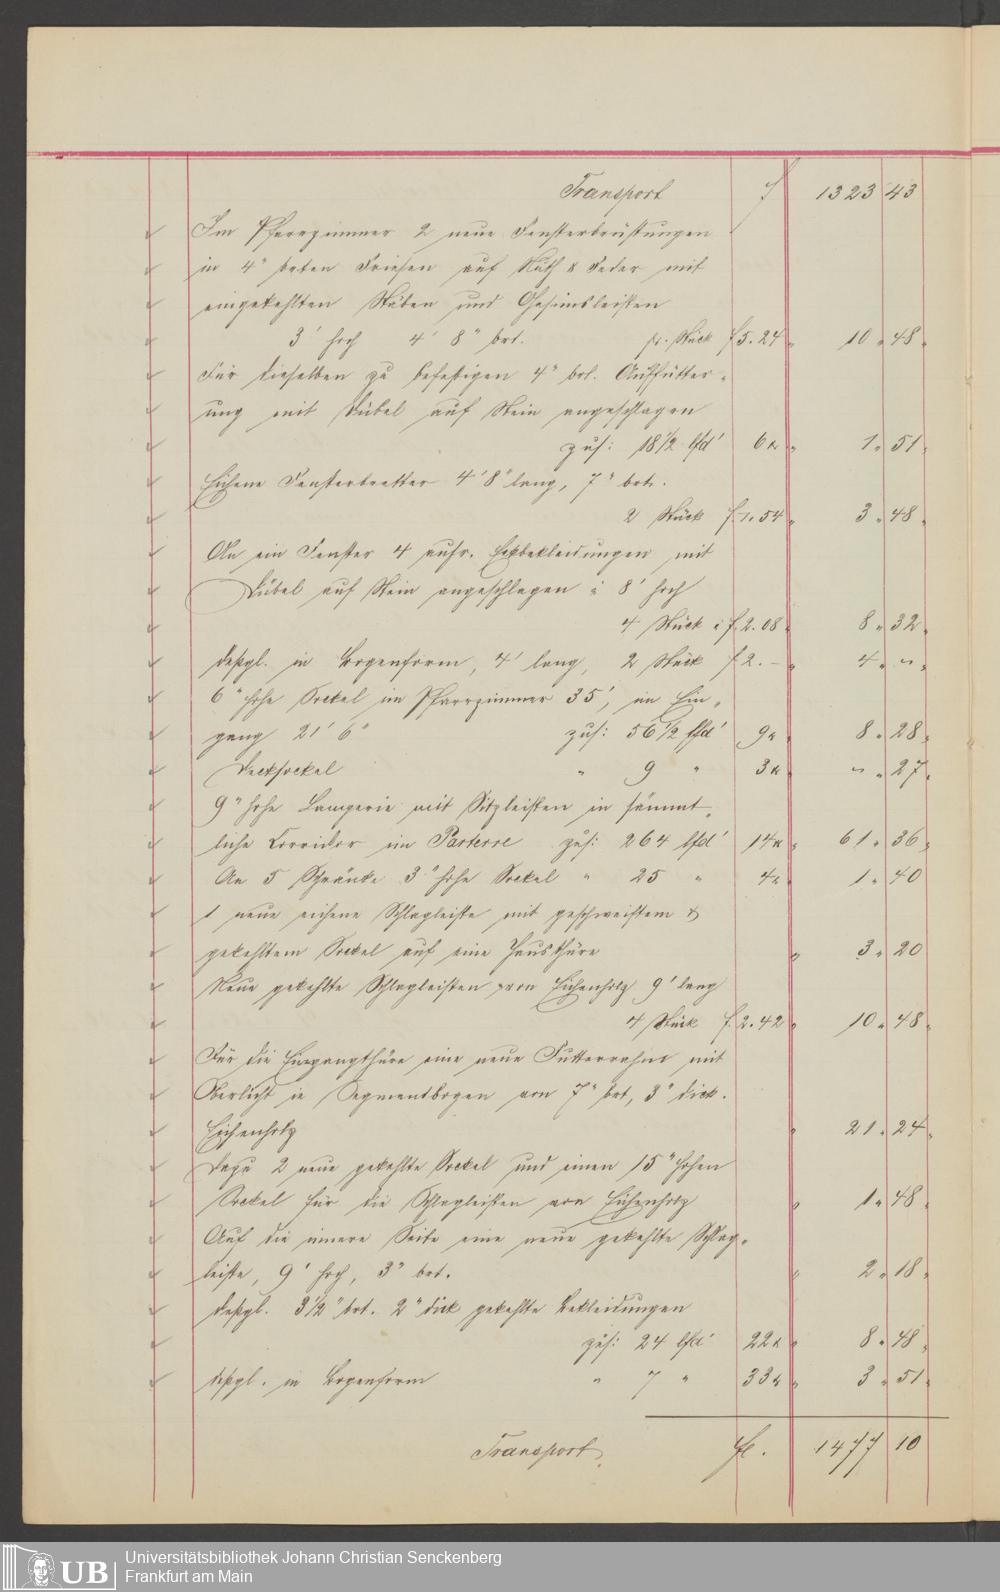 Transport f 1323 43
Im Pfarrzimmer 2 neue Fensterbrüstungen
in 4" brten Friesen auf Nuth & Feder mit
eingekehlten Stäben und Gesimsleisten
3' hoch 4' 8" brt. pr. Stück f 5.24 " 10 " 48 "
Für dieselben zu befestigen 4" brt. Auffütter-
ung mit Dübel auf Stein angeschlagen
zus: 18 1/2 lfd' 6 x " 1 " 51 "
Eichene Fensterbretter 4' 8" lang, 7" brt.
2 Stück f 1.54 " 3 " 48 "
An ein Fenster 4 aufr. Eckbekleidungen mit
Dübel auf Stein angeschlagen à 8' hoch
4 Stück à f. 2.08 " 8 " 32 "
deßgl. in Bogenform, 4' lang, 2 Stück f 2.– " 4 " – "
6" hohe Sockel im Pfarrzimmer 35', im Ein-
gang 21' 6" zus: 56 1/2 lfd' 9 x " 8 " 28 "
Decksockel " 9 " 3 x " – " 27 "
9" hohe Lamperie mit Sitzleisten in sämmt-
liche Corridor im Parterre zus: 264 lfd' 14 x " 61 " 36 "
An 5 Schränke 3" hohe Sockel " 25 " 4 x " 1 " 40
1 neue eichene Schlagleiste mit geschweiftem &
gekehltem Sockel auf eine Hausthüre " 3 " 20
Neue gekehlte Schlagleisten von Eichenholz 9' lang
4 Stück f. 2.42 " 10 " 48 "
Für die Eingangthüre eine neue Futterrahme mit
Oberlicht in Segmentbogen von 7" brt, 3" dick.
Eichenholz " 21 " 24 "
Dazu 2 neue gekehlte Sockel und einen 15" hohen
Sockel für die Schlagleisten von Eichenholz " 1 " 48 "
Auf die innere Seite eine neue gekehlte Schlag-
leiste, 9' hoch, 3" brt. " 2 " 18 "
deßgl. 3 1/2" brt. 2" dick gekehlte Bekleidungen
zus: 24 lfd' 22 x " 8 " 48 "
deßgl. in Bogenform " 7 " 33 x " 3 " 51 "
Transport f. 1477 10
Universitätsbibliothek Johann Christian Senckenberg
Frankfurt am Main
UB